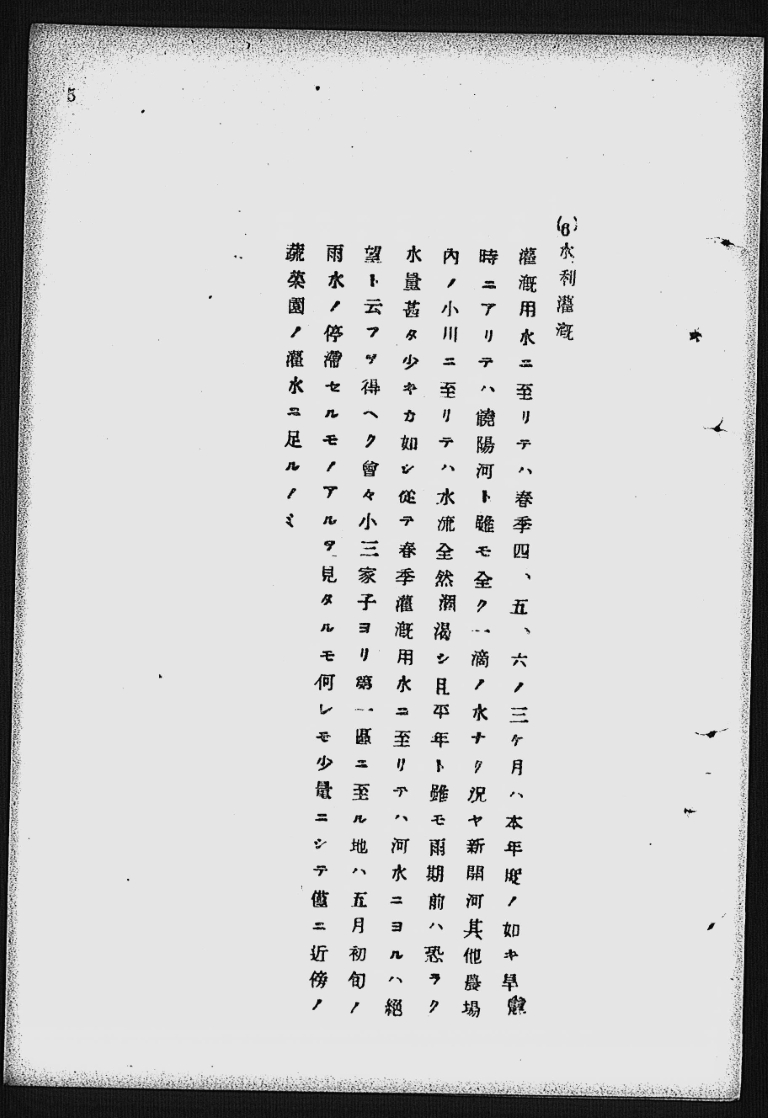 5
(6)水利灌漑
灌漑用水ニ至リテハ春季四、五、六ノ三ケ月ハ本年度ノ如キ旱
時ニアリテハ饒陽河ト雖モ全ク一滴ノ水ナク況ヤ新開河其他農場
內ノ小川ニ至リテハ水流全然涸渴シ且平年ト雖モ雨期前ハ恐ラク
水量甚タ少キカ如シ從テ春季灌漑用水ニ至リテハ河水ニヨルハ絕
望ト云フヲ得ヘク曾々小三家子ヨリ第一區ニ至ル地ハ五月初旬ノ
雨水ノ停滯セルモノアルヲ見タルモ何レモ少量ニシテ僅ニ近傍ノ
蔬菜園ノ灌水ニ足ルノミ